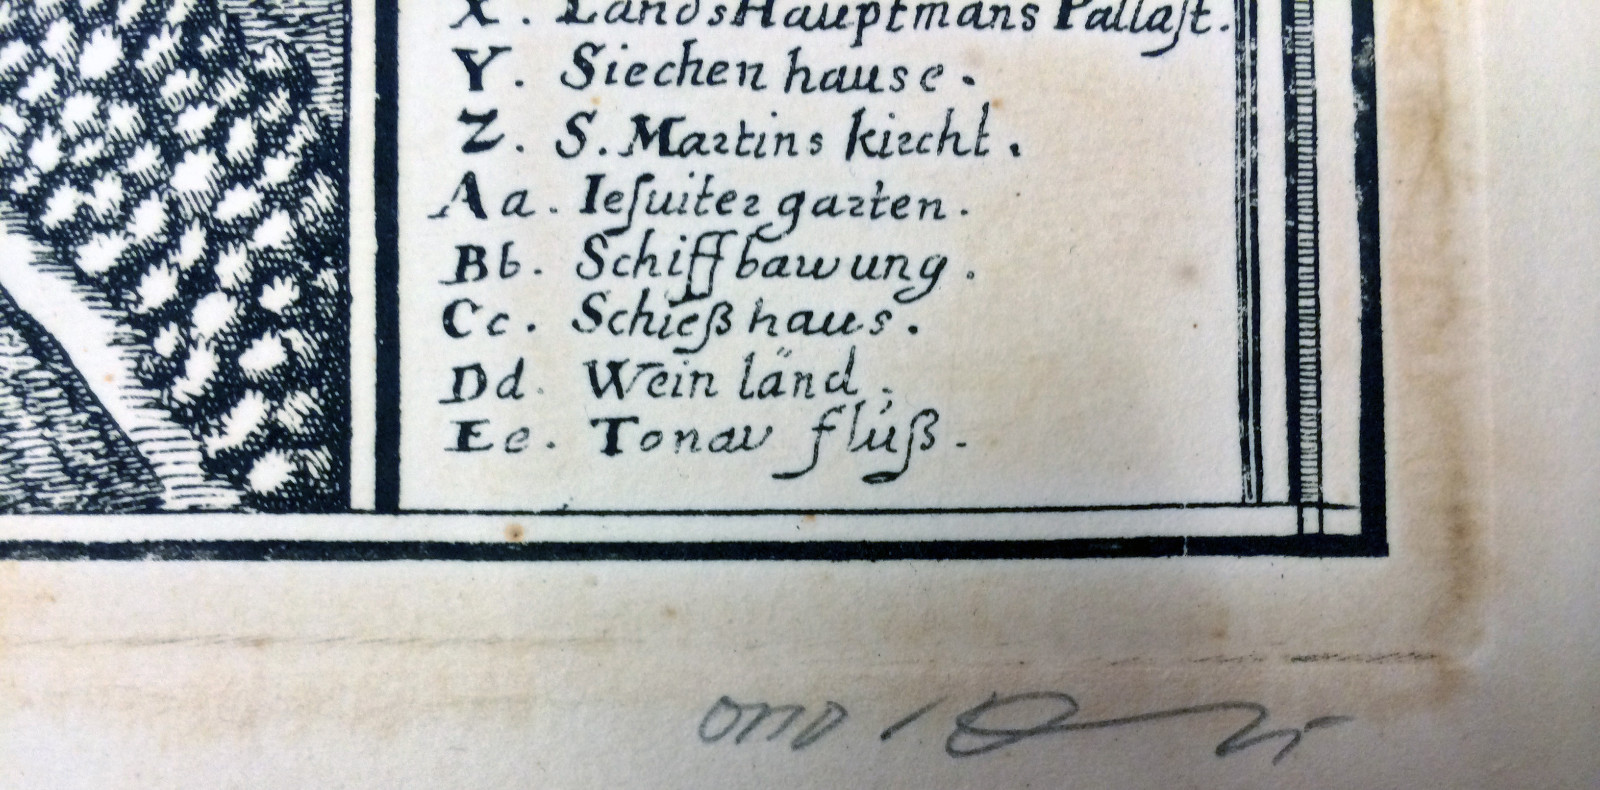 X. LandsHauptmans Pallaſt.
Y. Siechen hause.
Z. S. Martins kircht.
Aa. Ieſuiter garten.
Bb. Schiffbawung.
Cc. Schieß haus.
Dd. Wein länd.
Ee. Tonav flúß.